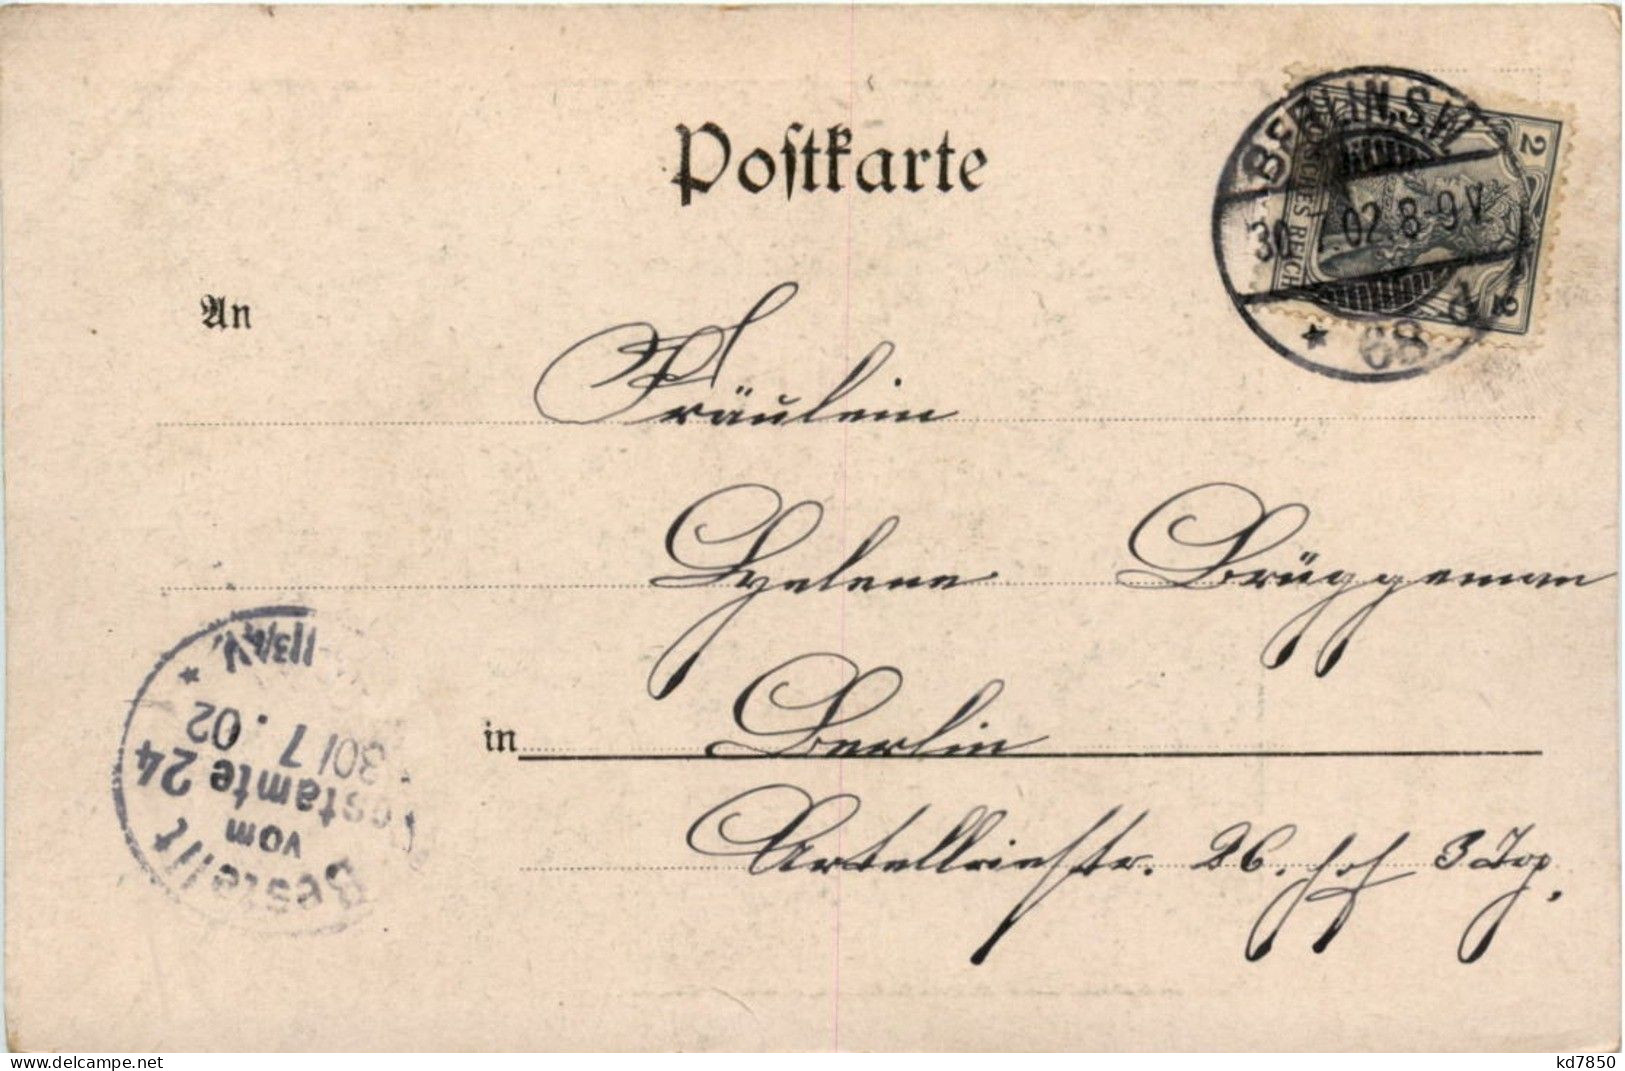 Postkarte
BERLIN.S.W.
30.7.02.8-9V.
* 68 d
2
DEUTSCHES REICH
2
An
Fräulein
Helene Brüggeman
in Berlin
Artellriestr. 26. Hof 3 Trp.
Bestellt
vom
Postamte 24
30/7.02
* 11¾V.
www.delcampe.net
kd7850